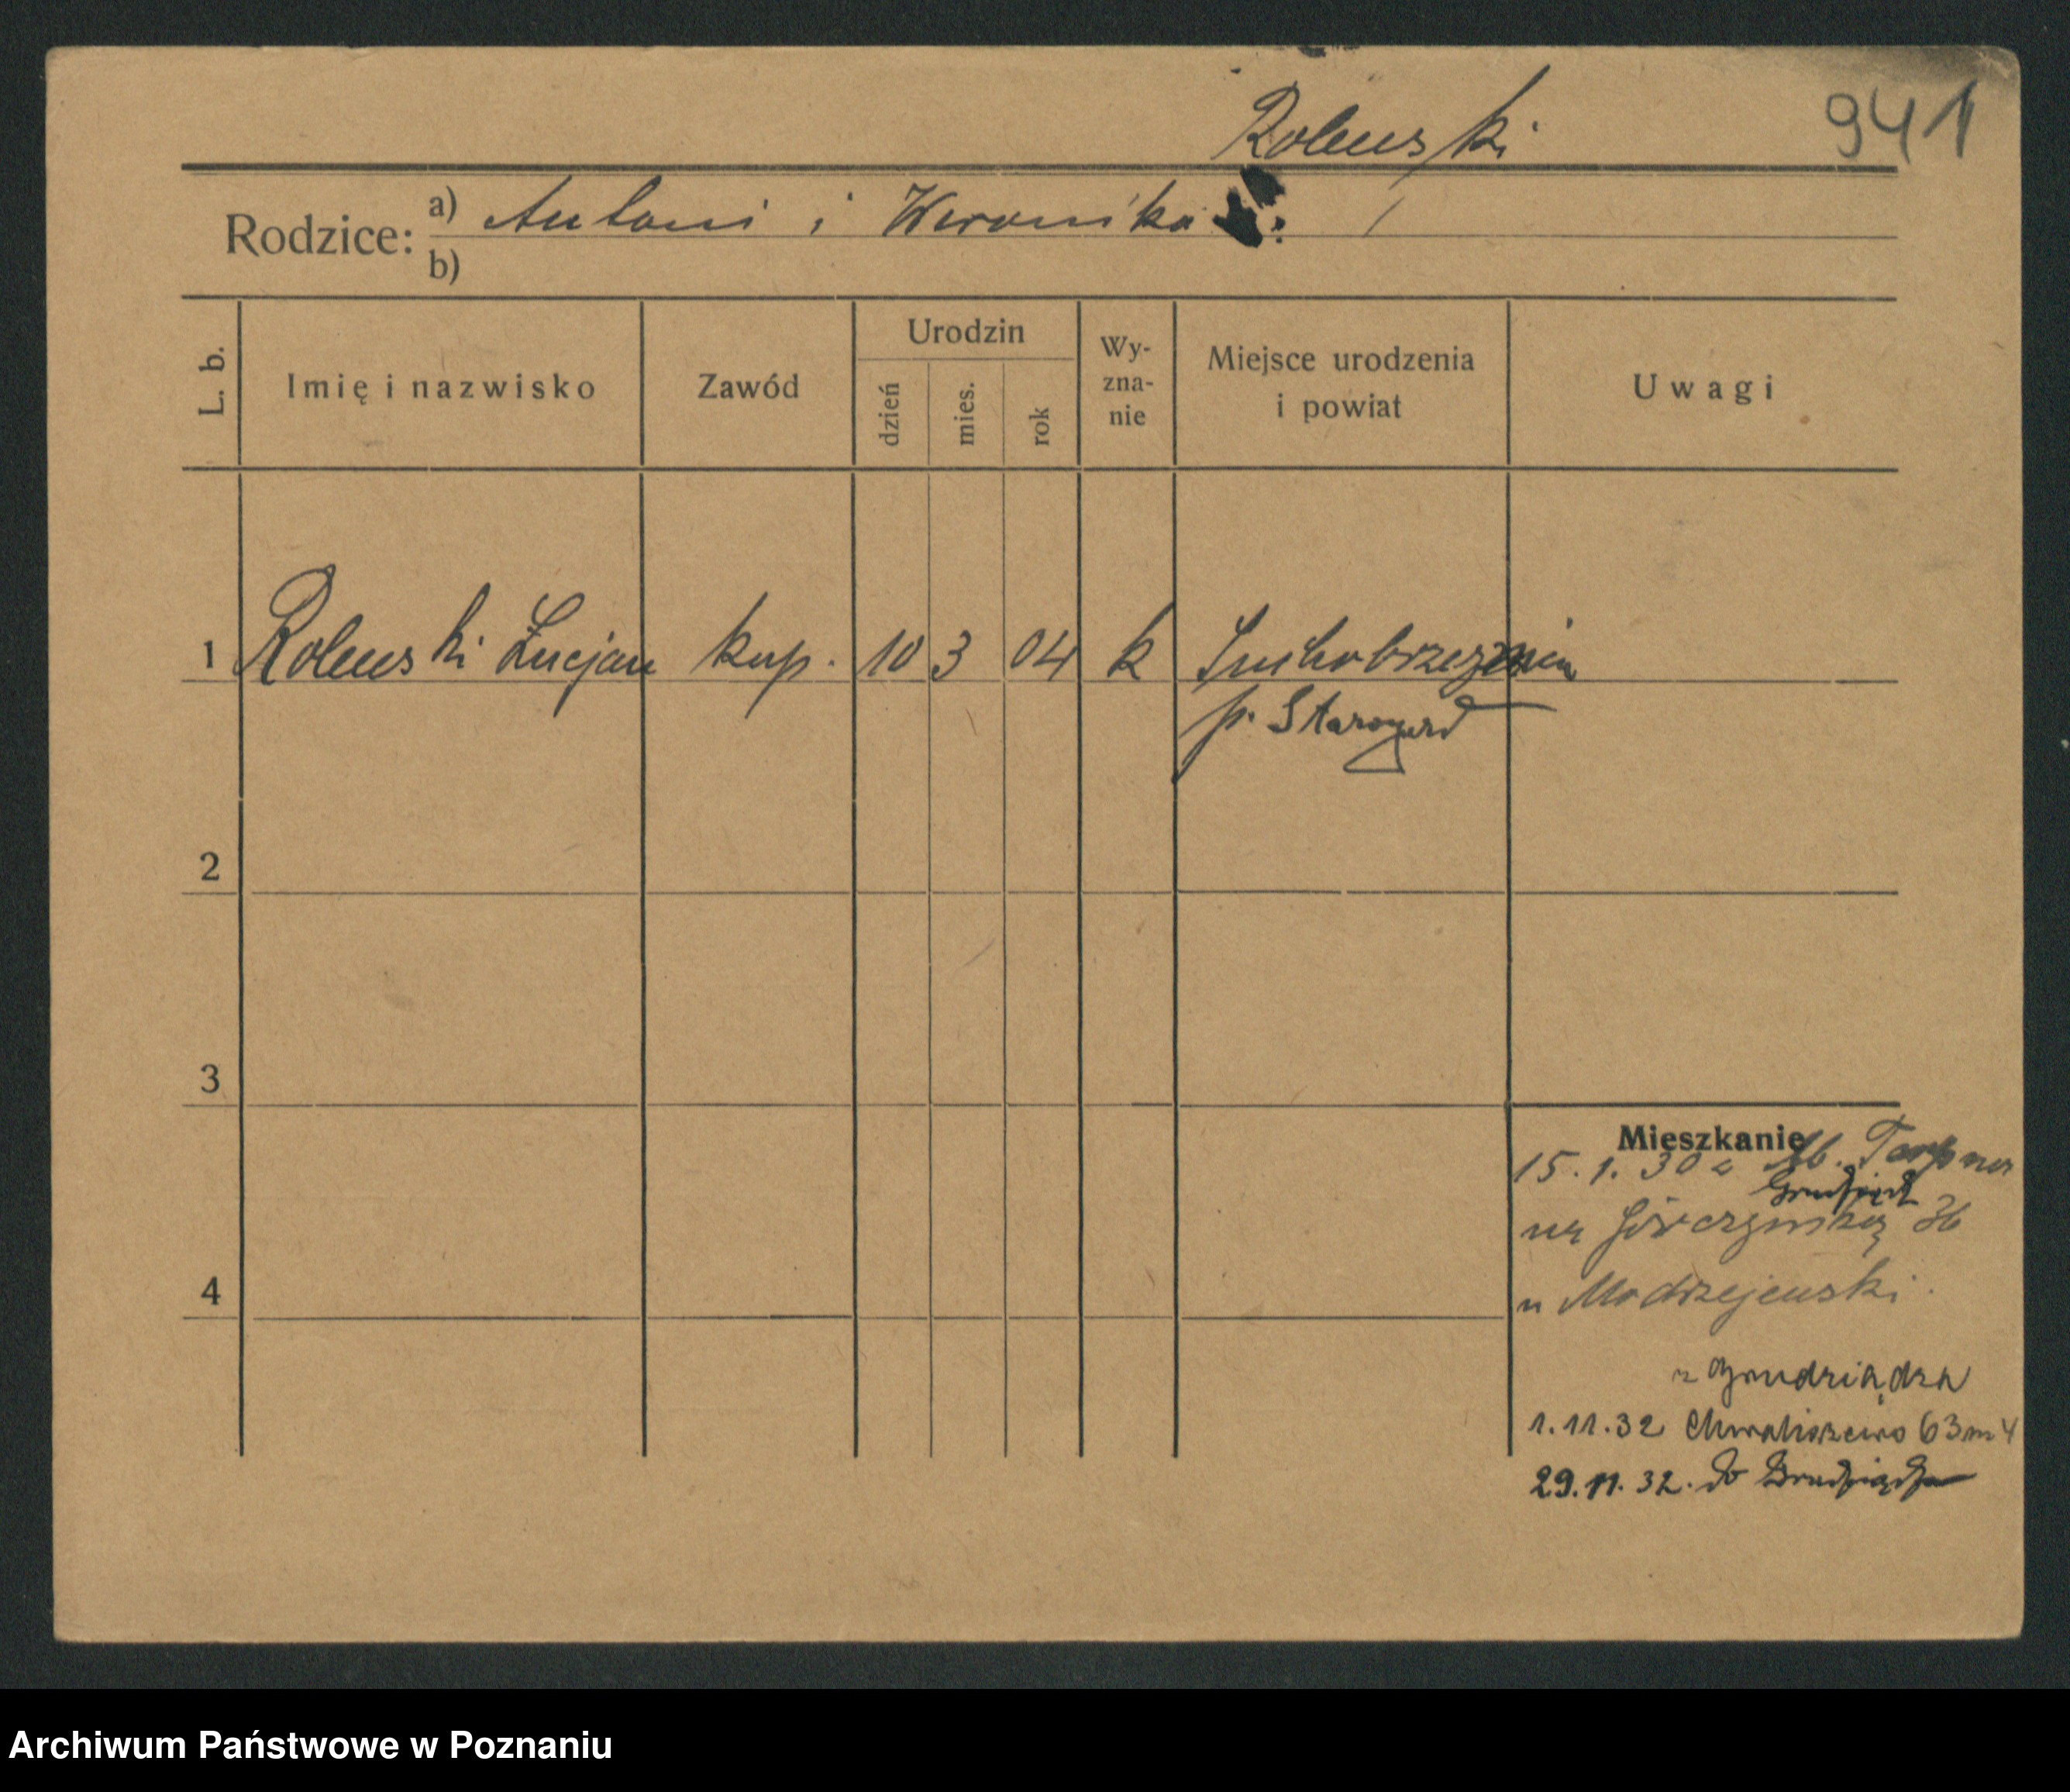 Rolewski
941
Rodzice: a) Antoni i Weronika
b)
L. b.
Imię i nazwisko
Zawód
Urodzin
dzień
mies.
rok
Wy-
zna-
nie
Miejsce urodzenia
i powiat
Uwagi
1 Rolewski Lucjan kup. 10 3 04 k
p. Starogard
2
3
4
Mieszkanie
15.1.30 z
Grudziądz
na 36
u Modrzejewski.
z Grudziądza
1.11.32 Chwaliszewo 63 m 4
29.11.32. do Grudziądza
Archiwum Państwowe w Poznaniu